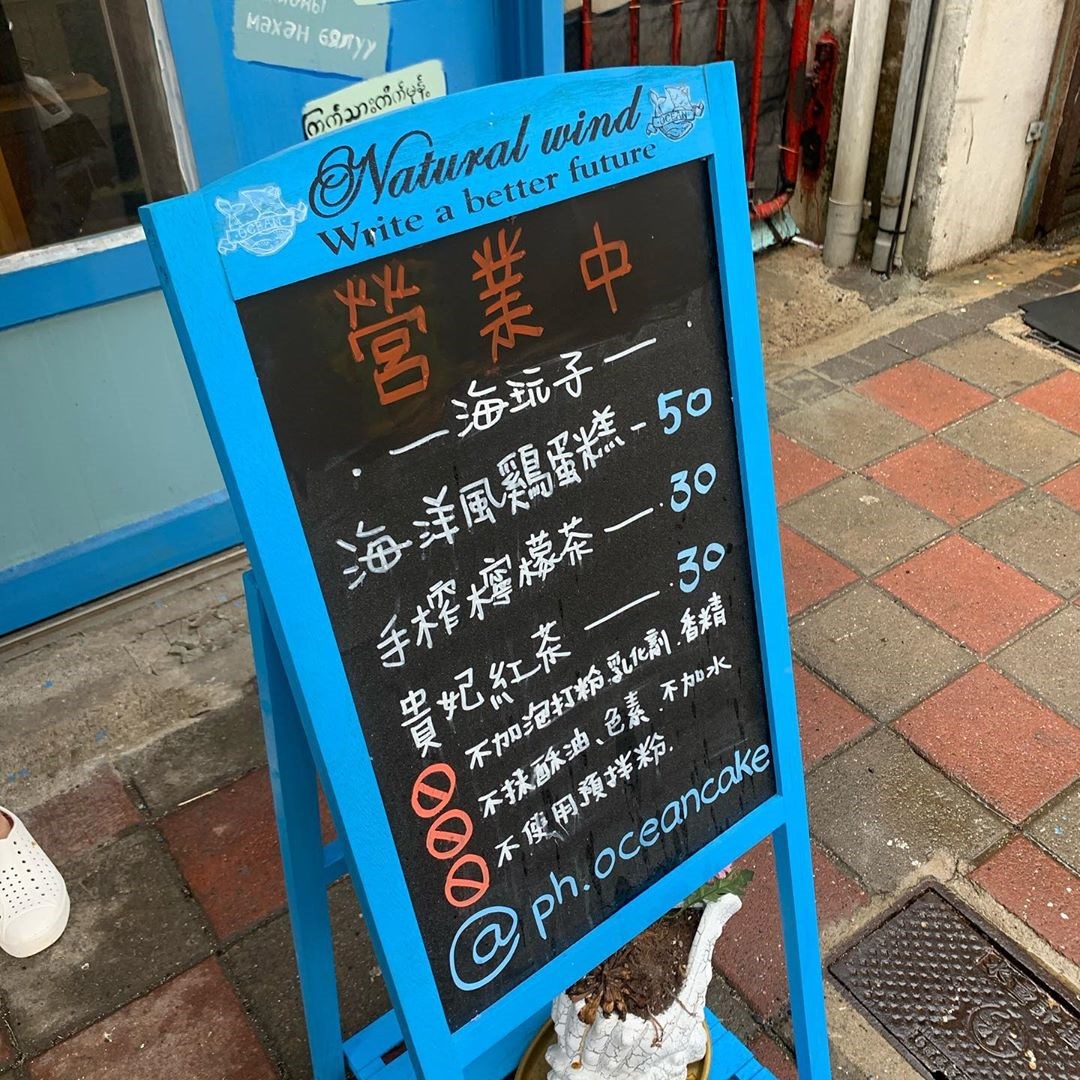 мaxəн бялуу
ကြက်သားကိတ်မုန့်
Natural wind
OCEAN
OCEAN
Write a better future
營業中
海玩子
海洋風鷄蛋糕 - 50
手榨檸檬茶 — 30
貴妃紅茶 — 30
不加泡打粉.乳化劑.香精
不抹酥油、色素.不加水
不使用預拌粉.
@ph.oceancake